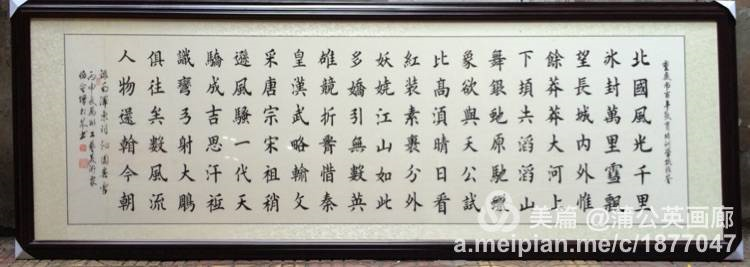 北國風光千里
冰封萬里雪飄
望長城內外惟
餘莽莽大河上
下頓失滔滔山
舞銀蛇原馳蠟
象欲與天公試
比高須晴日看
紅裝素裹分外
妖嬈江山如此
多嬌引無數英
雄競折腰惜秦
皇漢武略輸文
采唐宗宋祖稍
遜風騷一代天
驕成吉思汗祗
識彎弓射大鵰
俱往矣數風流
人物還翰今朝
沁園春雪
美篇 @蒲公英画廊
a.meipian.me/c/1877047